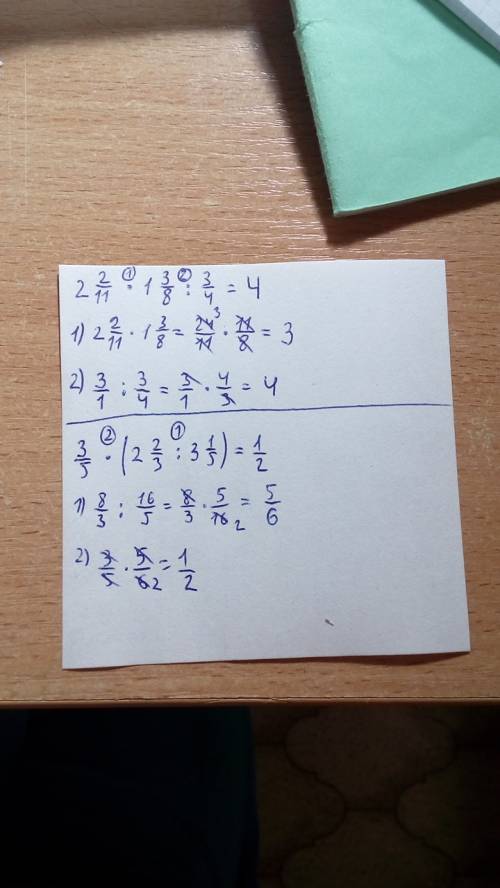 2 2/11 ① · 1 3/8 ② : 3/4 = 4
1) 2 2/11 · 1 3/8 = 24 3/11 · 11/8 = 3
2) 3/1 : 3/4 = 3/1 · 4/3 = 4
3/5 ② · (2 2/3 ① : 3 1/5) = 1/2
1) 8/3 : 16/5 = 8/3 · 5/16 2 = 5/6
2) 3/5 · 5/6 2 = 1/2